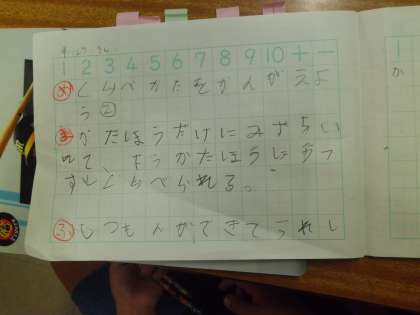 1 2 3 4 5 6 7 8 9 10 + −
め くらべかたをかんがえよ
う②
ま かたほうだけにみずをい
れて、もうかたほうにうつ
すとくらべられる。
ふ しつもんができてうれし
か